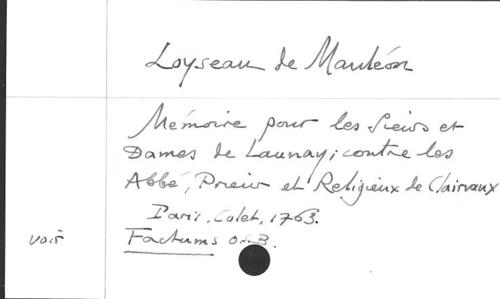 Loyseau de Mauléon
Mémoire pour les Sieurs et
Dames de Launay; contre les
Abbé, Prieur et Religieux de Clairvaux
Paris, Calet, 1763.
voir Factums